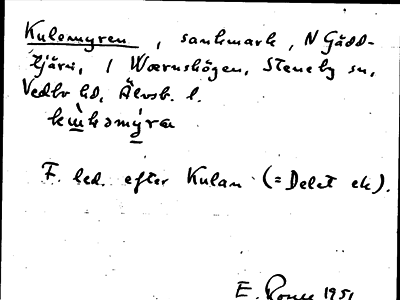 Kulomyren, sankmark, N Gädd-
tjärn, / Wærnskögen, Steneby sn,
Vedbo hd, Älvsb. l.
F. led. efter Kulan (= Delet ek).
E. 1951